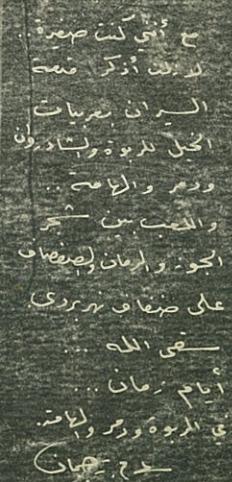 مع أنني كنت صغيرة..
لازلت أذكر متعة
السيران بعربيات
الخيل للربوة والشادروان
ودمر والهامة..
واللعب بين شجر
الجوز والرمان والصفصاف
على ضفاف نهر بردى.
سقى الله ...
أيام زمان ...
في الربوة ودمر والهامة.